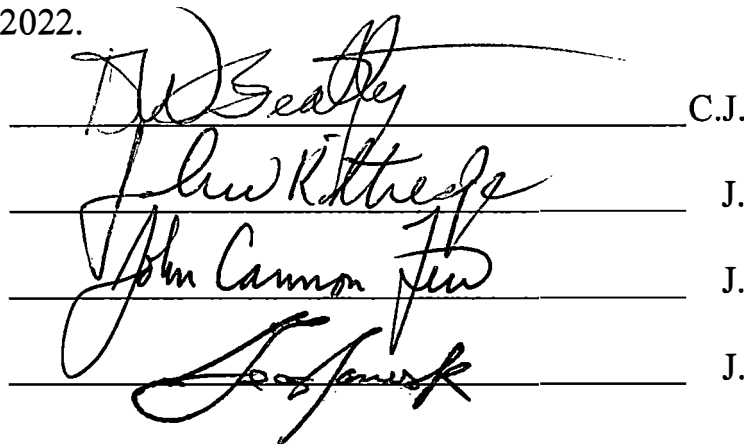 2022.
Beatty C.J.
John Kittredge J.
John Cannon Few J.
J.